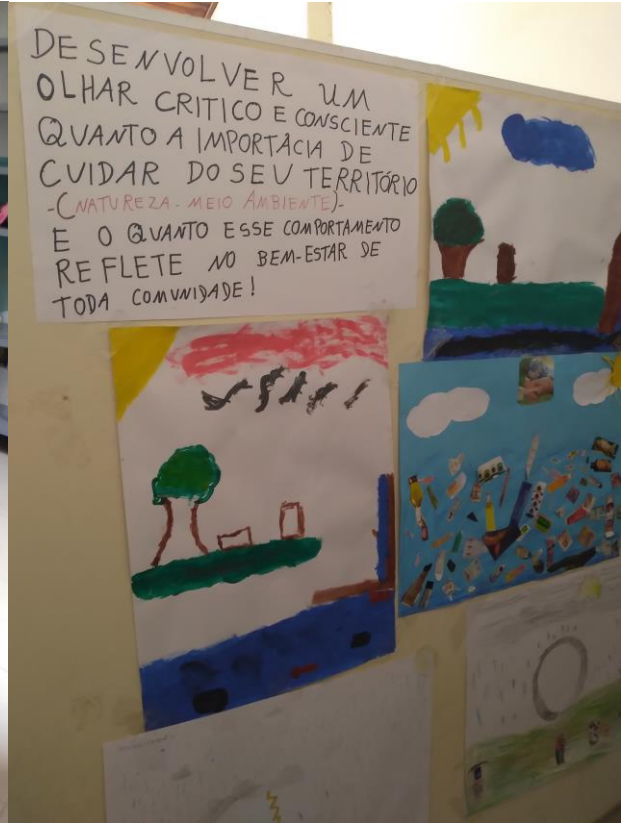 DESENVOLVER UM
OLHAR CRITICO E CONSCIENTE
QUANTO A IMPORTÂCIA DE
CUIDAR DO SEU TERRITÓRIO
-(NATUREZA - MEIO AMBIENTE)-
E O QUANTO ESSE COMPORTAMENTO
REFLETE NO BEM-ESTAR DE
TODA COMUNIDADE!